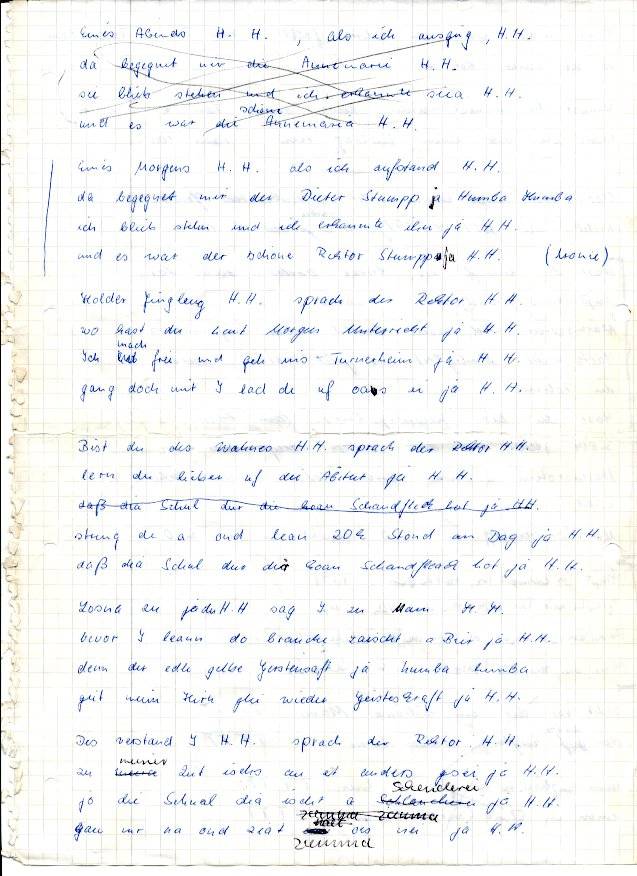 Eines Abends H. H. , als ich ausging , H. H.
da begegnet mir die Annemarie H. H.
sie blieb stehen und ich erkannte sia H. H.
schöne
und es war die Annemaria H. H.
Eines Morgens H. H. als ich aufstand H. H.
da begegnet mir der Dieter Stumpp ja Humba Humba
ich blieb stehn und ich erkannte ihn ja H. H.
und es war der schöne Rektor Stumpp ja H. H.
Holder Jüngling H. H. sprach der Rektor H. H.
wo hast du heut Morgen Unterricht ja H. H.
mach
Ich frei und geh ins Turnerheim ja H. H.
gang doch mit I lad de uf oas ei ja H. H.
Bist du des H. H. sprach der Rektor H. H.
lern du lieber uf die Abitur ja H. H.
daß dia Schul dur die koan Schandfleck hot ja H.H.
streng de a ond lean 20 Stond an Dag ja H. H.
daß dia Schul dur di koan Schandfleack hot ja H. H.
Losna zu H. H. sag I zu H. H.
bevor I leann do brauche zaischt a Bier ja H. H.
denn der edle gelbe Gerstensaft ja humba humba
geit meim Hirn glei wieder Geisteskraft ja H. H.
Des verstand I H. H. sprach der Rektor H. H.
meiner
zu Zeit ischs au et anders gsei ja H. H.
Schenderei
jo die Schual dia ischt a ja H. H.
gan mr na ond ois nei ja H. H.